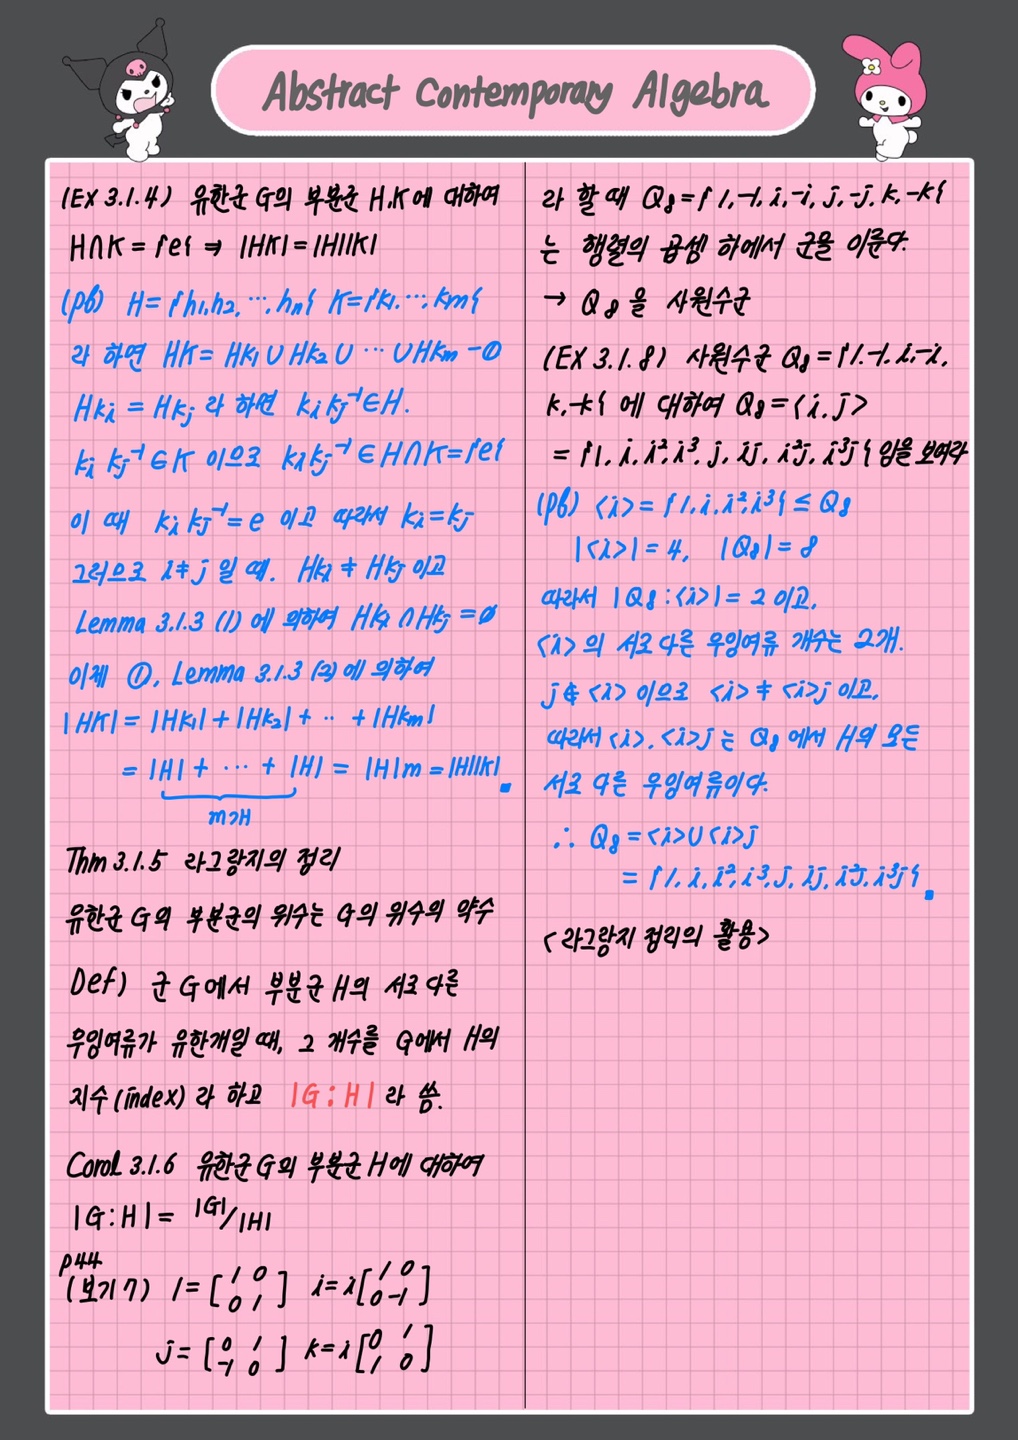 Abstract Contemporary Algebra
(EX 3.1.4) 유한군 G의 부분군 H,K에 대하여
H∩K = {e} ⇒ |HK| = |H||K|
(pb) H = {h1,h2, ⋯, hn} K = {k1. ⋯, km}
라 하면 HK = Hk1 ∪ Hk2 ∪ ⋯ ∪ Hkm -①
Hki = Hkj 라 하면 ki kj⁻¹ ∈ H.
ki kj⁻¹ ∈ K 이으로 kikj⁻¹ ∈ H∩K = {e}
이 때 ki kj⁻¹ = e 이고 따라서 ki = kj
그러므로 i ≠ j 일 때. Hki ≠ Hkj 이고
Lemma 3.1.3 (1) 에 의하여 Hki ∩ Hkj = ∅
이제 ①, Lemma 3.1.3 (2) 에 의하여
|HK| = |Hk1| + |Hk2| + ‥ + |Hkm|
= |H| + ⋯ + |H| = |H|m = |H||K|.
m개
Thm 3.1.5 라그랑지의 정리
유한군 G의 부분군의 위수는 G의 위수의 약수
Def) 군 G에서 부분군 H의 서로 다른
우잉여류가 유한개일 때, 그 개수를 G에서 H의
지수 (index) 라 하고 |G:H| 라 씀.
Corol 3.1.6 유한군 G의 부분군 H에 대하여
|G:H| = |G|/|H|
p44
(보기 7) 1 = [1 0 i = i[1 0
0 1] 0 -1]
j = [0 1 k = i[0 1
-1 0] 1 0]
라 할 때 Q8 = {1,-1,i,-i,j,-j,k,-k}
는 행렬의 곱셈 하에서 군을 이룬다.
→ Q8 을 사원수군
(EX 3.1.8) 사원수군 Q8 = {1.-1.i.-i.
k,-k} 에 대하여 Q8 = <i.j>
= {1, i, i², i³, j, ij, i²j, i³j} 임을 보여라
(pb) <i> = {1,i,i²,i³} ≤ Q8
|<i>| = 4, |Q8| = 8
따라서 |Q8:<i>| = 2 이고,
<i> 의 서로 다른 우잉여류 개수는 2개.
j ∉ <i> 이으로 <i> ≠ <i>j 이고,
따라서 <i>, <i>j 는 Q8 에서 H의 모든
서로 다른 우잉여류이다.
∴ Q8 = <i> ∪ <i>j
= {1, i, i², i³, j, ij, i²j, i³j}.
<라그랑지 정리의 활용>